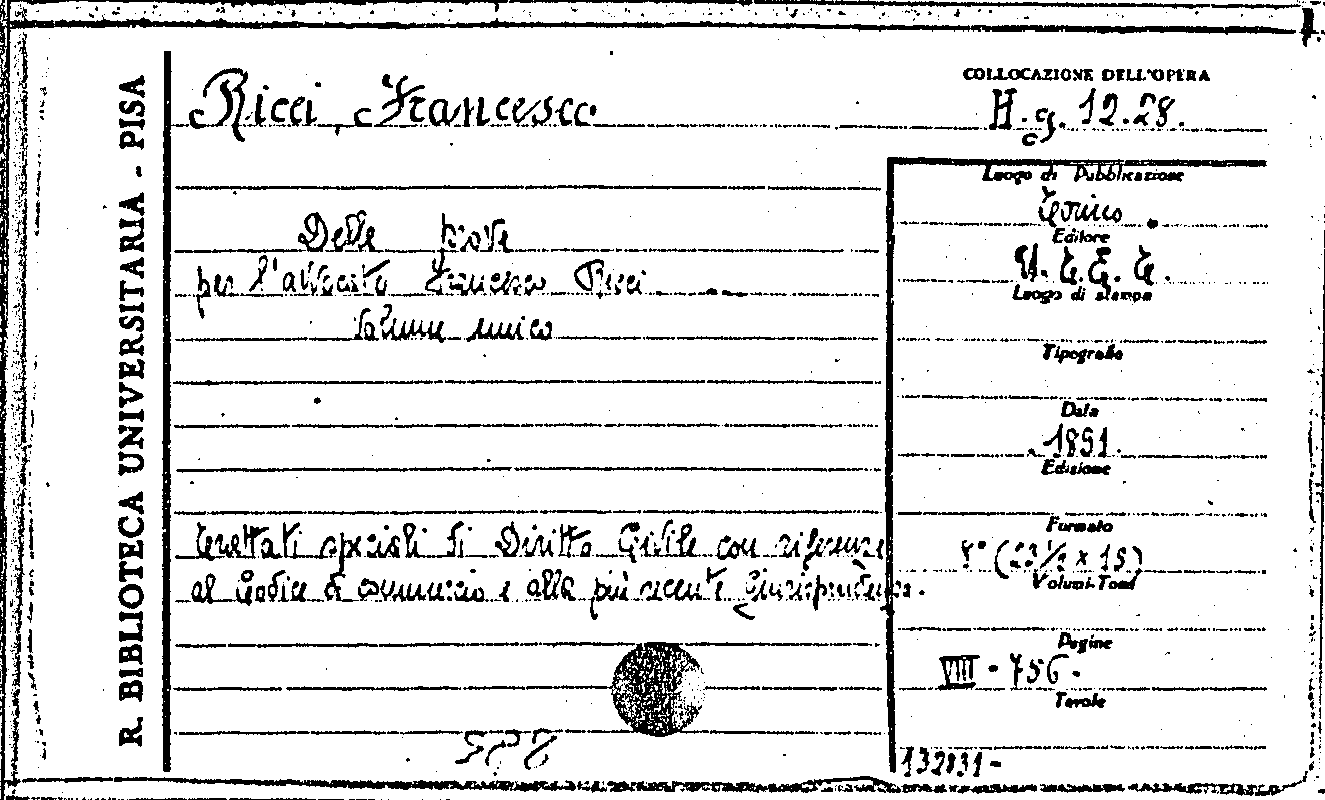 R. BIBLIOTECA UNIVERSITARIA - PISA
Ricci, Francesco
COLLOCAZIONE DELL'OPERA
H. g. 12.28.
Delle prove
per l'avvocato Francesco Ricci.
Volume unico
Trattati speciali di Diritto Civile con riferenze
al Codice di commercio e alla più recente Giurisprudenza.
Luogo di Pubblicazione
Torino.
Editore
U. T. E. T.
Luogo di stampa
Tipografia
Data
1891.
Edizione
Formato
8° (23 1/2 x 15)
Volumi-Tomi
Pagine
VIII - 756.
Tavole
132831-